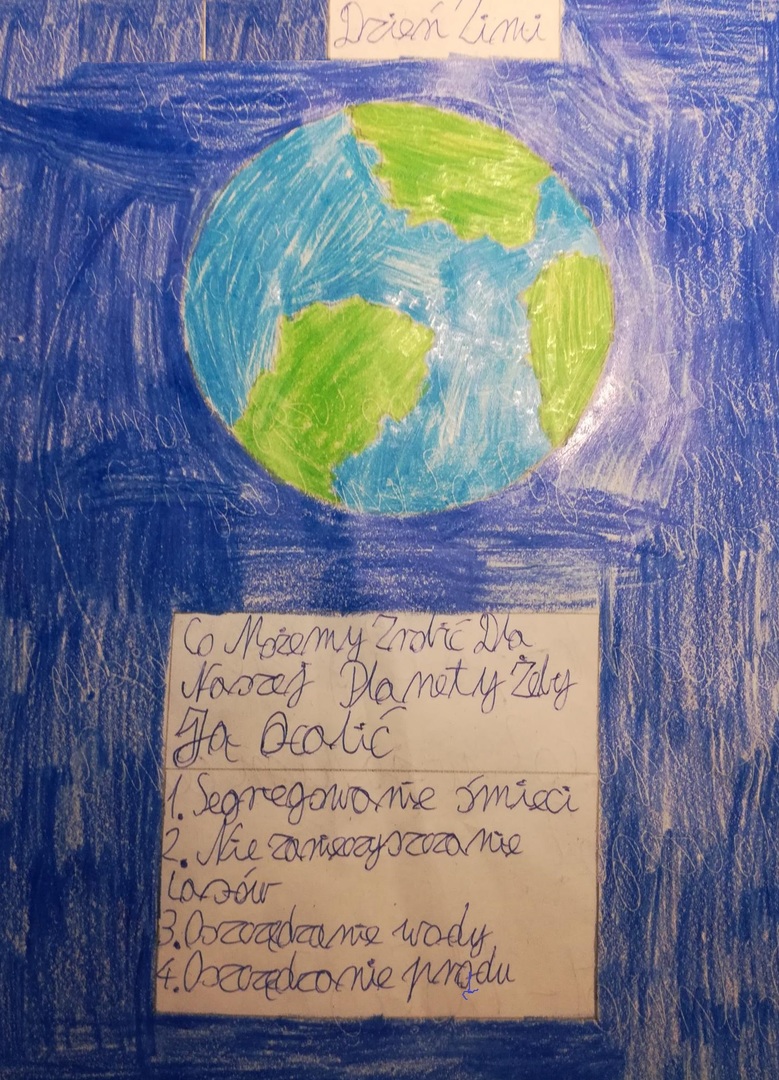 Dzień Zimi
Co Możemy Zrobić Dla
Naszej Planety Żeby
Ją Ocalić
1. Segregowanie śmieci
2. Nie zanieczyszczanie
Lasów
3. Oszczędzanie wody
4. Oszczędzanie prądu